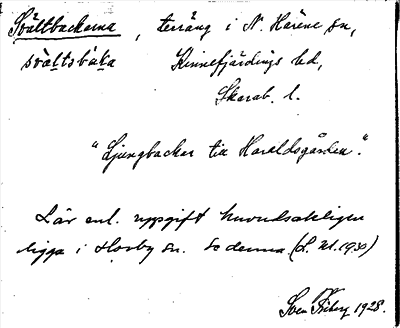 Svältbackarna, terräng i N. Härene sn,
svältsbáka Kinnefjärdings hd,
Skarab. l.
"Ljungbackar till Haraldsgården".
Lär enl. uppgift huvudsakligen
ligga i Horby sn. Se denna (L. M. 1930)
Sven 1928.